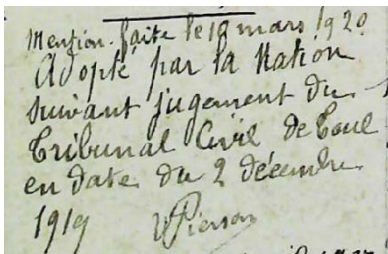 Mention faite le 19 mars 1920
Adopté par la Nation
suivant jugement du
Tribunal Civil de Toul
en date du 2 décembre
1919 Pierson